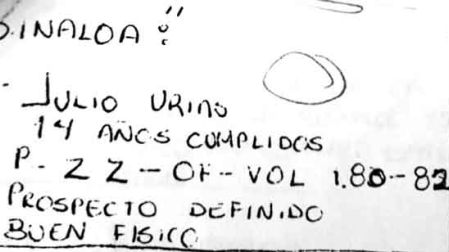 SINALOA :"
- JULIO URIAS
14 AÑOS CUMPLIDOS
P- ZZ-OF-VOL 1.80-82
PROSPECTO DEFINIDO
BUEN FISICO